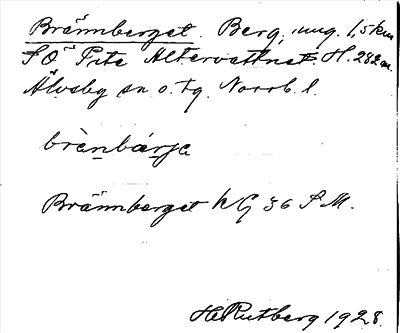 Brännberget. Berg, ung. 1,5 km
SO Pite Altervattnet. H. 282 m.
Älvsby sn o. tg. Norrb. l.
brènbárja
Brännberget hG 36 S.M.
H Rutberg 1928.